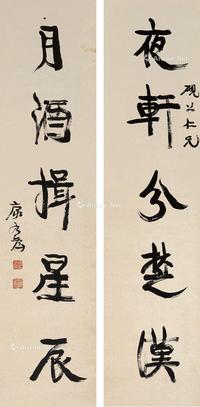 硯公仁兄
夜軒分楚漢
月酒揖星辰
康有為